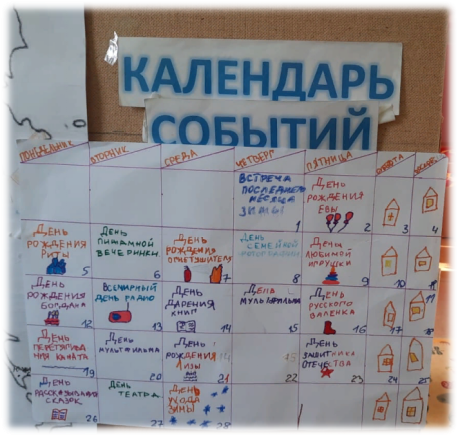 КАЛЕНДАРЬ
СОБЫТИЙ
ПОНЕДЕЛЬНИК ВТОРНИК СРЕДА ЧЕТВЕРГ ПЯТНИЦА СУББОТА
ВСТРЕЧА
ПОСЛЕДНЕГО
МЕСЯЦА
ЗИМЫ
1
ДЕНЬ
РОЖДЕНИЯ
ЕВЫ
2
3
4
ДЕНЬ
РОЖДЕНИЯ
РИТЫ
5
ДЕНЬ
ПИЖАМНОЙ
ВЕЧЕРИНКИ
6
ДЕНЬ
РОЖДЕНИЯ
ОГНЕТУШИТЕЛЯ
7
ДЕНЬ
СЕМЕЙНОЙ
8
ДЕНЬ
ЛЮБИМОЙ
ИГРУШКИ
9
10
11
ДЕНЬ
РОЖДЕНИЯ
БОГДАНА
12
ВСЕМИРНЫЙ
ДЕНЬ РАДИО
13
ДЕНЬ
ДАРЕНИЯ
КНИГ
14
ДЕНЬ
МУЛЬТФИЛЬМА
15
ДЕНЬ
РУССКОГО
ВАЛЕНКА
16
17
18
ДЕНЬ
ПЕРЕТЯГИВА
НИЯ КАНАТА
19
ДЕНЬ
МУЛЬТФИЛЬМА
20
ДЕНЬ
РОЖДЕНИЯ
ЛИЗЫ
21
22
ДЕНЬ
ЗАЩИТНИКА
ОТЕЧЕСТВА
23
24
25
ДЕНЬ
РАССКАЗЫВАНИЯ
СКАЗОК
26
ДЕНЬ
ТЕАТРА
27
ДЕНЬ
УХОДА
ЗИМЫ
28